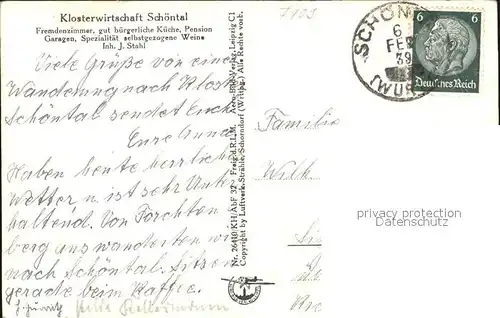 Klosterwirtschaft Schöntal
Fremdenzimmer, gut bürgerliche Küche, Pension
Garagen, Spezialität selbstgezogene Weine
Inh. J. Stahl
Viele Grüße von einer
Wanderung nach Klost
Schöntal sendet Euch
Eure Anna
Haben heute herrlich
Wetter u. ist sehr Unter
haltend. Von Forchten
berg aus wanderten wir
nach Schöntal. Sitzen
gerade beim Kaffee.
Nr. 26410 KH/AbF 32 Freig. d. R.L.M. Aero-Bild-Verlag, Leipzig C1
Copyright by Luftverk. Strähle, Schorndorf (Wttbg.) Alle Rechte vorb.
SCHÖN
6
FEB
39
(WÜR
6 6
Deutsches Reich
Familie
Wilh
privacy protection
Datenschutz